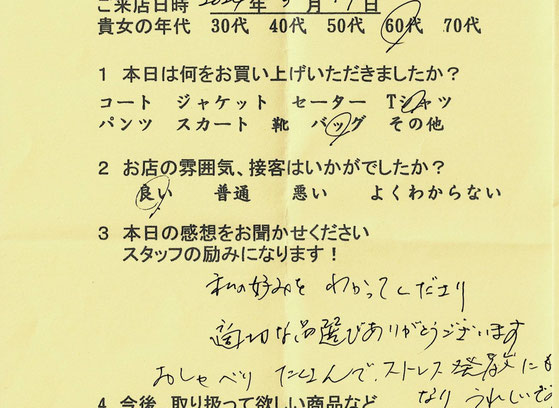 ご来店日時 2024年5月19日
貴女の年代 30代 40代 50代 60代 70代
1 本日は何をお買い上げいただきましたか？
コート ジャケット セーター Tシャツ
パンツ スカート 靴 バッグ その他
2 お店の雰囲気、接客はいかがでしたか？
良い 普通 悪い よくわからない
3 本日の感想をお聞かせください
スタッフの励みになります！
私の好みを わかってくださり
適切な品選びありがとうございます
おしゃべり たくさんで、ストレス発散にも
4 今後、取り扱って欲しい商品など なり うれしいで